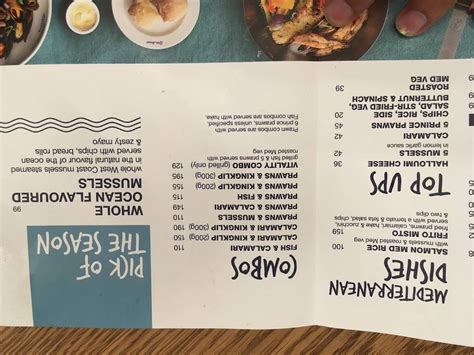 MEDITERRANEAN
DISHES
SALMON MED RICE 100
with mussels & roasted Med veg
FRITO MISTO 159
fried prawns, calamari, hake & zucchini,
served with a tomato & feta side salad, chips
& two dips
TOP UPS
HALLOUMI CHEESE, 36
5 MUSSELS
in lemon garlic sauce
CALAMARI 45
5 PRINCE PRAWNS 42
CHIPS, RICE, SIDE 20
SALAD, STIR-FRIED VEG,
BUTTERNUT & SPINACH
ROASTED 39
MED VEG
COMBOS
FISH & CALAMARI 110
CALAMARI & KINGKLIP (200g) 150
CALAMARI KINGKLIP (300g) 190
PRAWNS & MUSSELS 110
PRAWNS & CALAMARI 149
PRAWNS & FISH 115
PRAWNS & KINGKLIP (200g) 156
PRAWNS & KINGKLIP (300g) 195
VITALITY COMBO (grilled only) 129
grilled fish & 5 prawns served with
roasted Med veg
Prawn combos are served with
6 prince prawns, unless specified.
Fish combos are served with hake.
PICK OF
THE SEASON
WHOLE 99
OCEAN FLAVOURED
MUSSELS
whole West Coast mussels steamed
in the natural flavour of the ocean
served with chips, bread rolls
& zesty mayo